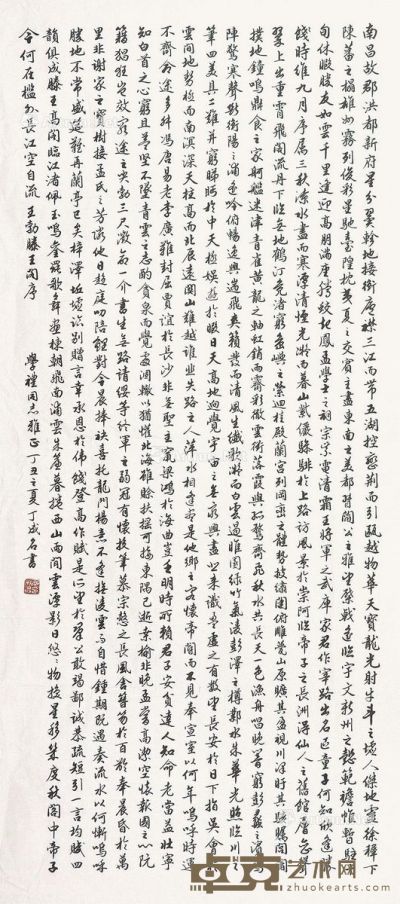 南昌故郡洪都新府星分翼軫地接衡廬襟三江而帶五湖控蠻荊而引甌越物華天寶龍光射牛斗之墟人傑地靈徐孺下
陳蕃之榻雄州霧列俊彩星馳臺隍枕夷夏之交賓主盡東南之美都督閻公之雅望棨戟遙臨宇文新州之懿範襜帷暫駐十
旬休暇勝友如雲千里逢迎高朋滿座騰蛟起鳳孟學士之詞宗紫電清霜王將軍之武庫家君作宰路出名區童子何知躬逢勝
餞時維九月序屬三秋潦水盡而寒潭清煙光凝而暮山紫儼驂騑於上路訪風景於崇阿臨帝子之長洲得仙人之舊館層巒聳
翠上出重霄飛閣流丹下臨無地鶴汀鳧渚窮島嶼之縈迴桂殿蘭宮列岡巒之體勢披繡闥俯雕甍山原曠其盈視川澤盱其駭矚閭閻
撲地鐘鳴鼎食之家舸艦迷津青雀黃龍之舳虹銷雨霽彩徹雲衢落霞與孤鶩齊飛秋水共長天一色漁舟唱晚響窮彭蠡之濱雁
陣驚寒聲斷衡陽之浦遙吟俯暢逸興遄飛爽籟發而清風生纖歌凝而白雲遏睢園綠竹氣凌彭澤之樽鄴水朱華光照臨川之
筆四美具二難并窮睇眄於中天極娛遊於暇日天高地迥覺宇宙之無窮興盡悲來識盈虛之有數望長安於日下指吳會於
雲間地勢極而南溟深天柱高而北辰遠關山難越誰悲失路之人萍水相逢盡是他鄉之客懷帝閽而不見奉宣室以何年嗚呼時運
不齊命途多舛馮唐易老李廣難封屈賈誼於長沙非無聖主竄梁鴻於海曲豈乏明時所賴君子安貧達人知命老當益壯寧
知白首之心窮且益堅不墜青雲之志酌貪泉而覺爽處涸轍以猶懽北海雖賒扶搖可接東隅已逝桑榆非晚孟嘗高潔空懷報國之心阮
籍猖狂豈效窮途之哭勃三尺微命一介書生無路請纓等終軍之弱冠有懷投筆慕宗愨之長風舍簪笏於百齡奉晨昏於萬
里非謝家之寶樹接孟氏之芳鄰他日趨庭叨陪鯉對今晨捧袂喜托龍門楊意不逢撫凌雲而自惜鍾期既遇奏流水以何慚嗚呼
勝地不常盛筵難再蘭亭已矣梓澤丘墟臨別贈言幸承恩於偉餞登高作賦是所望於群公敢竭鄙誠恭疏短引一言均賦四
韻俱成滕王高閣臨江渚佩玉鳴鸞罷歌舞畫棟朝飛南浦雲朱簾暮捲西山雨閒雲潭影日悠悠物換星移幾度秋閣中帝子
今何在檻外長江空自流 王勃滕王閣序
學禮同志雅正 丁丑之夏 丁成石書
卓克艺术网
zhuokearts.com